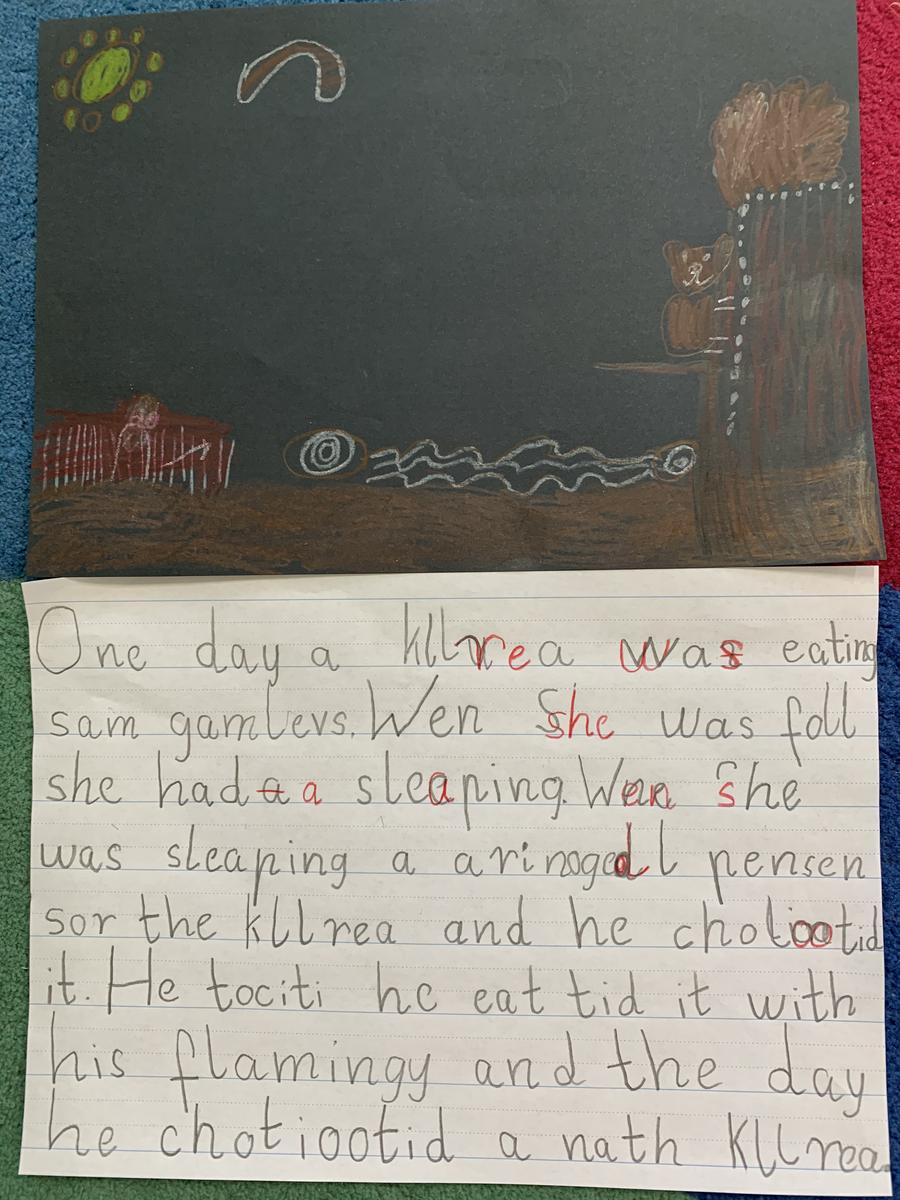 One day a kllrea was eating
sam gamlevs. Wen She was foll
she had a sleaping. Wen She
was sleaping a arinogedl pensen
sor the kllrea and he chotiootid
it. He tociti he eat tid it with
his flamingy and the day
he chotiootid a nath kllrea.